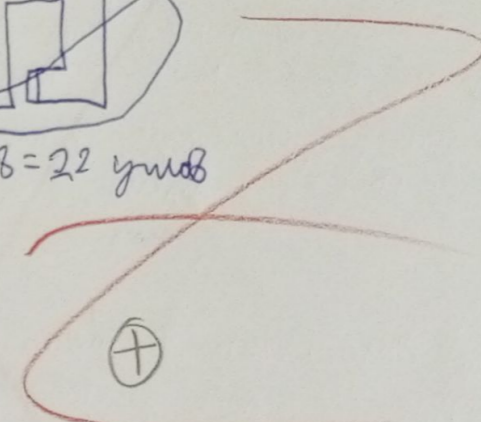 8 = 22 углов